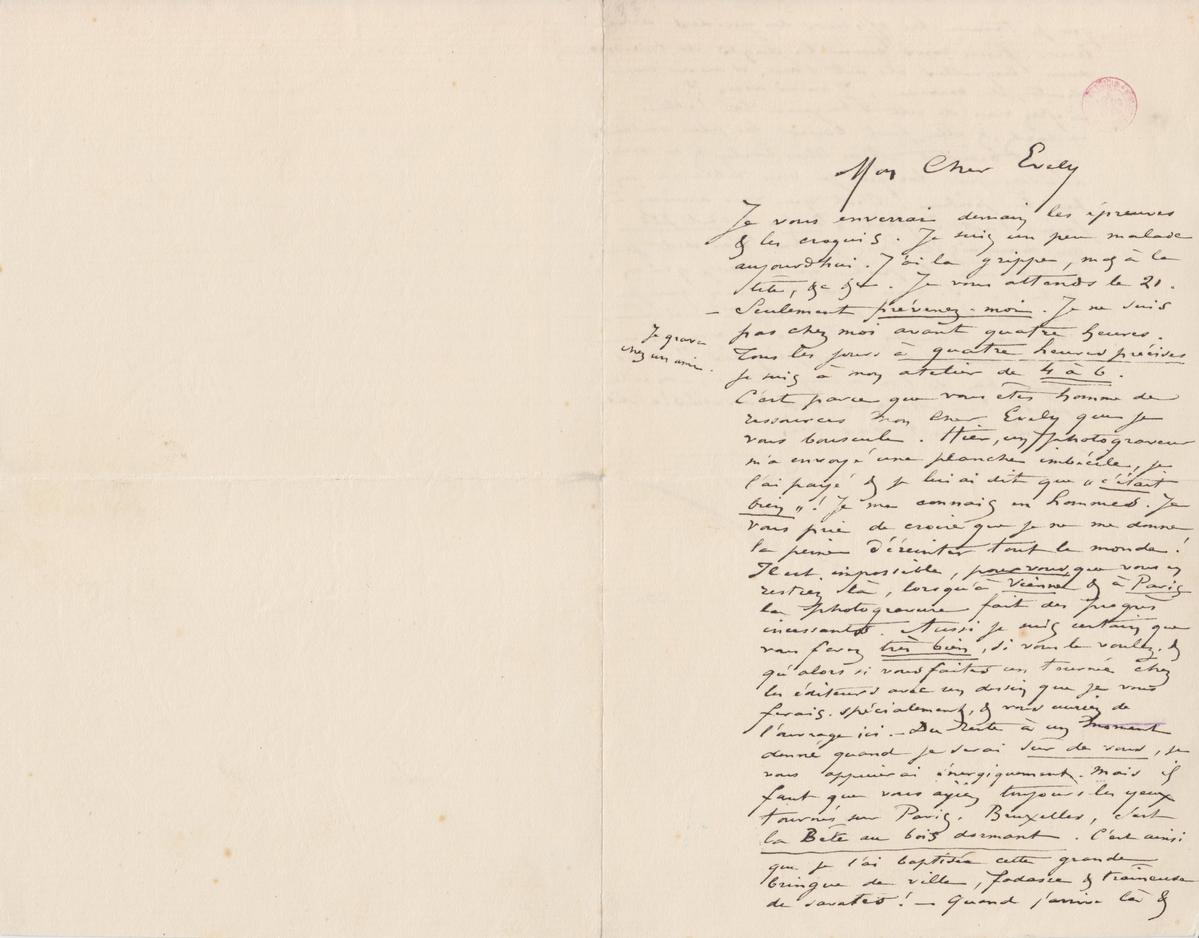 Mon Cher Evely
Je vous enverrai demain les épreuves
& les croquis. Je suis un peu malade
aujourdhui. J'ai la grippe, mas à la
tête, &c &c. Je vous attends le 21.
— Seulement prévenez-moi. Je ne suis
pas chez moi avant quatre heures.
Je grave
chez un ami.
Tous les jours à quatre heures précises
je suis à mon atelier de 4 à 6.
C'est parce que vous êtes homme de
ressources mon Cher Evely que je
vous bouscule. Hier, un photograveur
m'a envoyé une planche imbécile, je
l'ai payé & je lui ai dit que „c'était
bien„! Je me connais en hommes. Je
vous prie de croire que je ne me donne
la peine d'éreinter tout le monde!
Il est impossible, pour vous, que vous en
restiez là, lorsqu'à Vienne & à Paris
la photogravure fait des progrès
incessants. Aussi je suis certain que
vous ferez très bien, si vous le voulez, &
qu'alors si vous faites un tournée chez
les éditeurs avec un dessin que je vous
ferais spécialement, & vous auriez de
l'ouvrage ici. — Du reste à un moment
donné quand je serai sûr de vous, je
vous appuierai énergiquement. Mais il
faut que vous ayiez toujours les yeux
tournés sur Paris. Bruxelles, c'est
la Bête au bois dormant. C'est ainsi
que je l'ai baptisée cette grande
bringue de ville, fadasse & traineuse
de savates! — Quand j'arrive là &